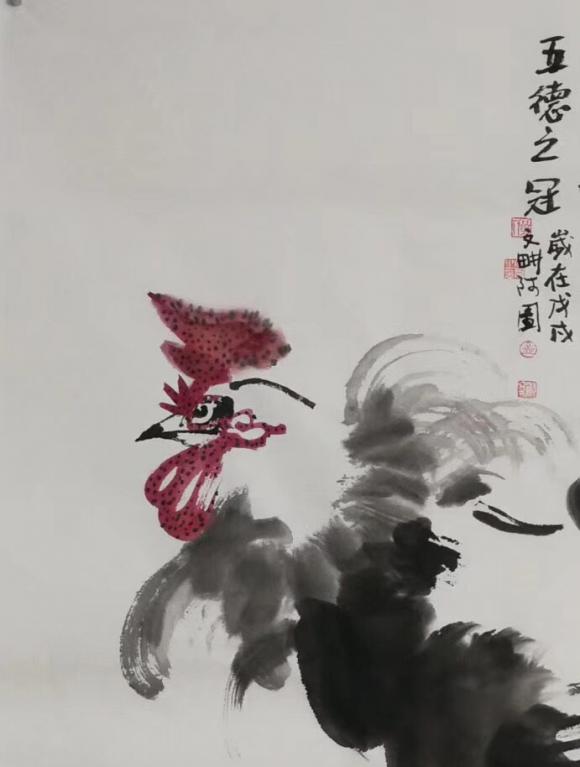 五德之冠
歲在戊戌
文畊阿圖